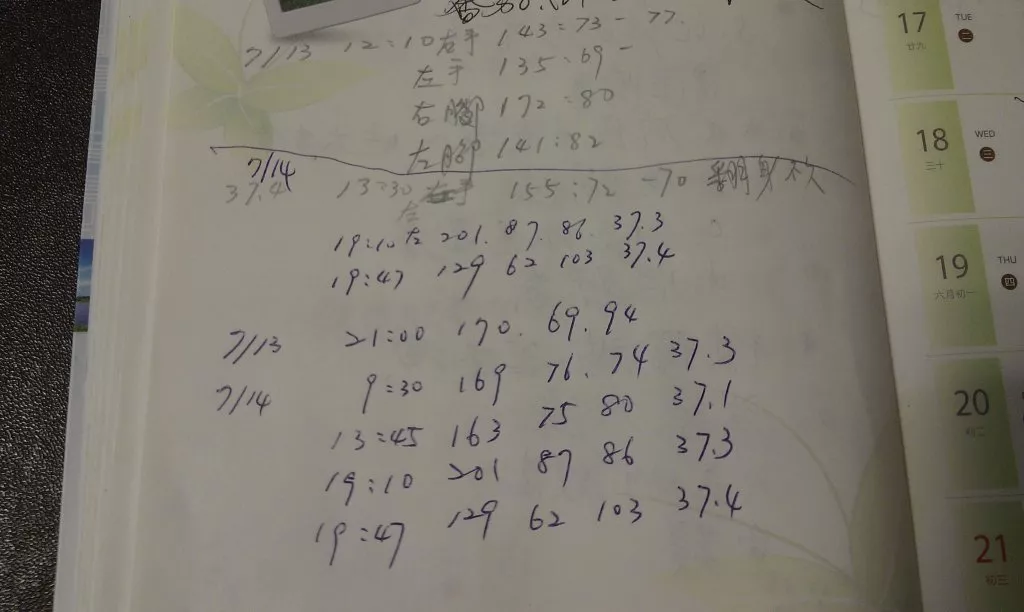 7/13 12:10右手 143:73-77.
左手 135:69-
右腳 172:80
左腳 141:82
7/14
37.4 13:30 手 155:72 -70 翻身不久
左
19:10左 201. 87. 86. 37.3
19:47 129 62 103 37.4
7/13 21:00 170. 69. 94
7/14 9:30 169 76. 74 37.3
13:45 163 75 80 37.1
19:10 201 87 86 37.3
19:47 129 62 103 37.4
17 TUE 二
廿九
18 WED 三
三十
19 THU 四
六月初一
20
初二
21
初三